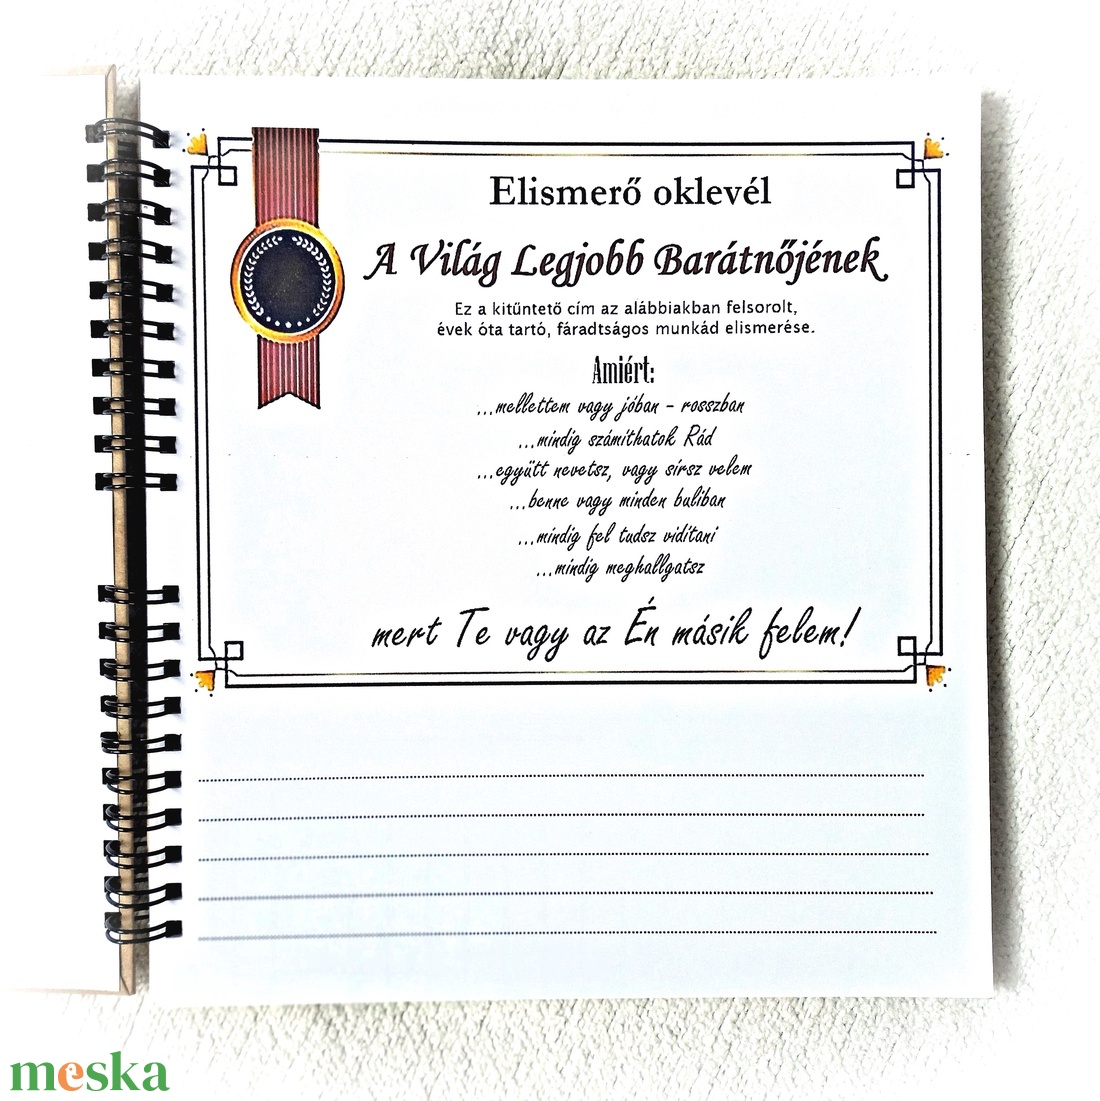 Elismerő oklevél
A Világ Legjobb Barátnőjének
Ez a kitűntető cím az alábbiakban felsorolt,
évek óta tartó, fáradtságos munkád elismerése.
Amiért:
...mellettem vagy jóban - rosszban
...mindig számíthatok Rád
...együtt nevetsz, vagy sírsz velem
...benne vagy minden buliban
...mindig fel tudsz vidítani
...mindig meghallgatsz
mert Te vagy az Én másik felem!
meska